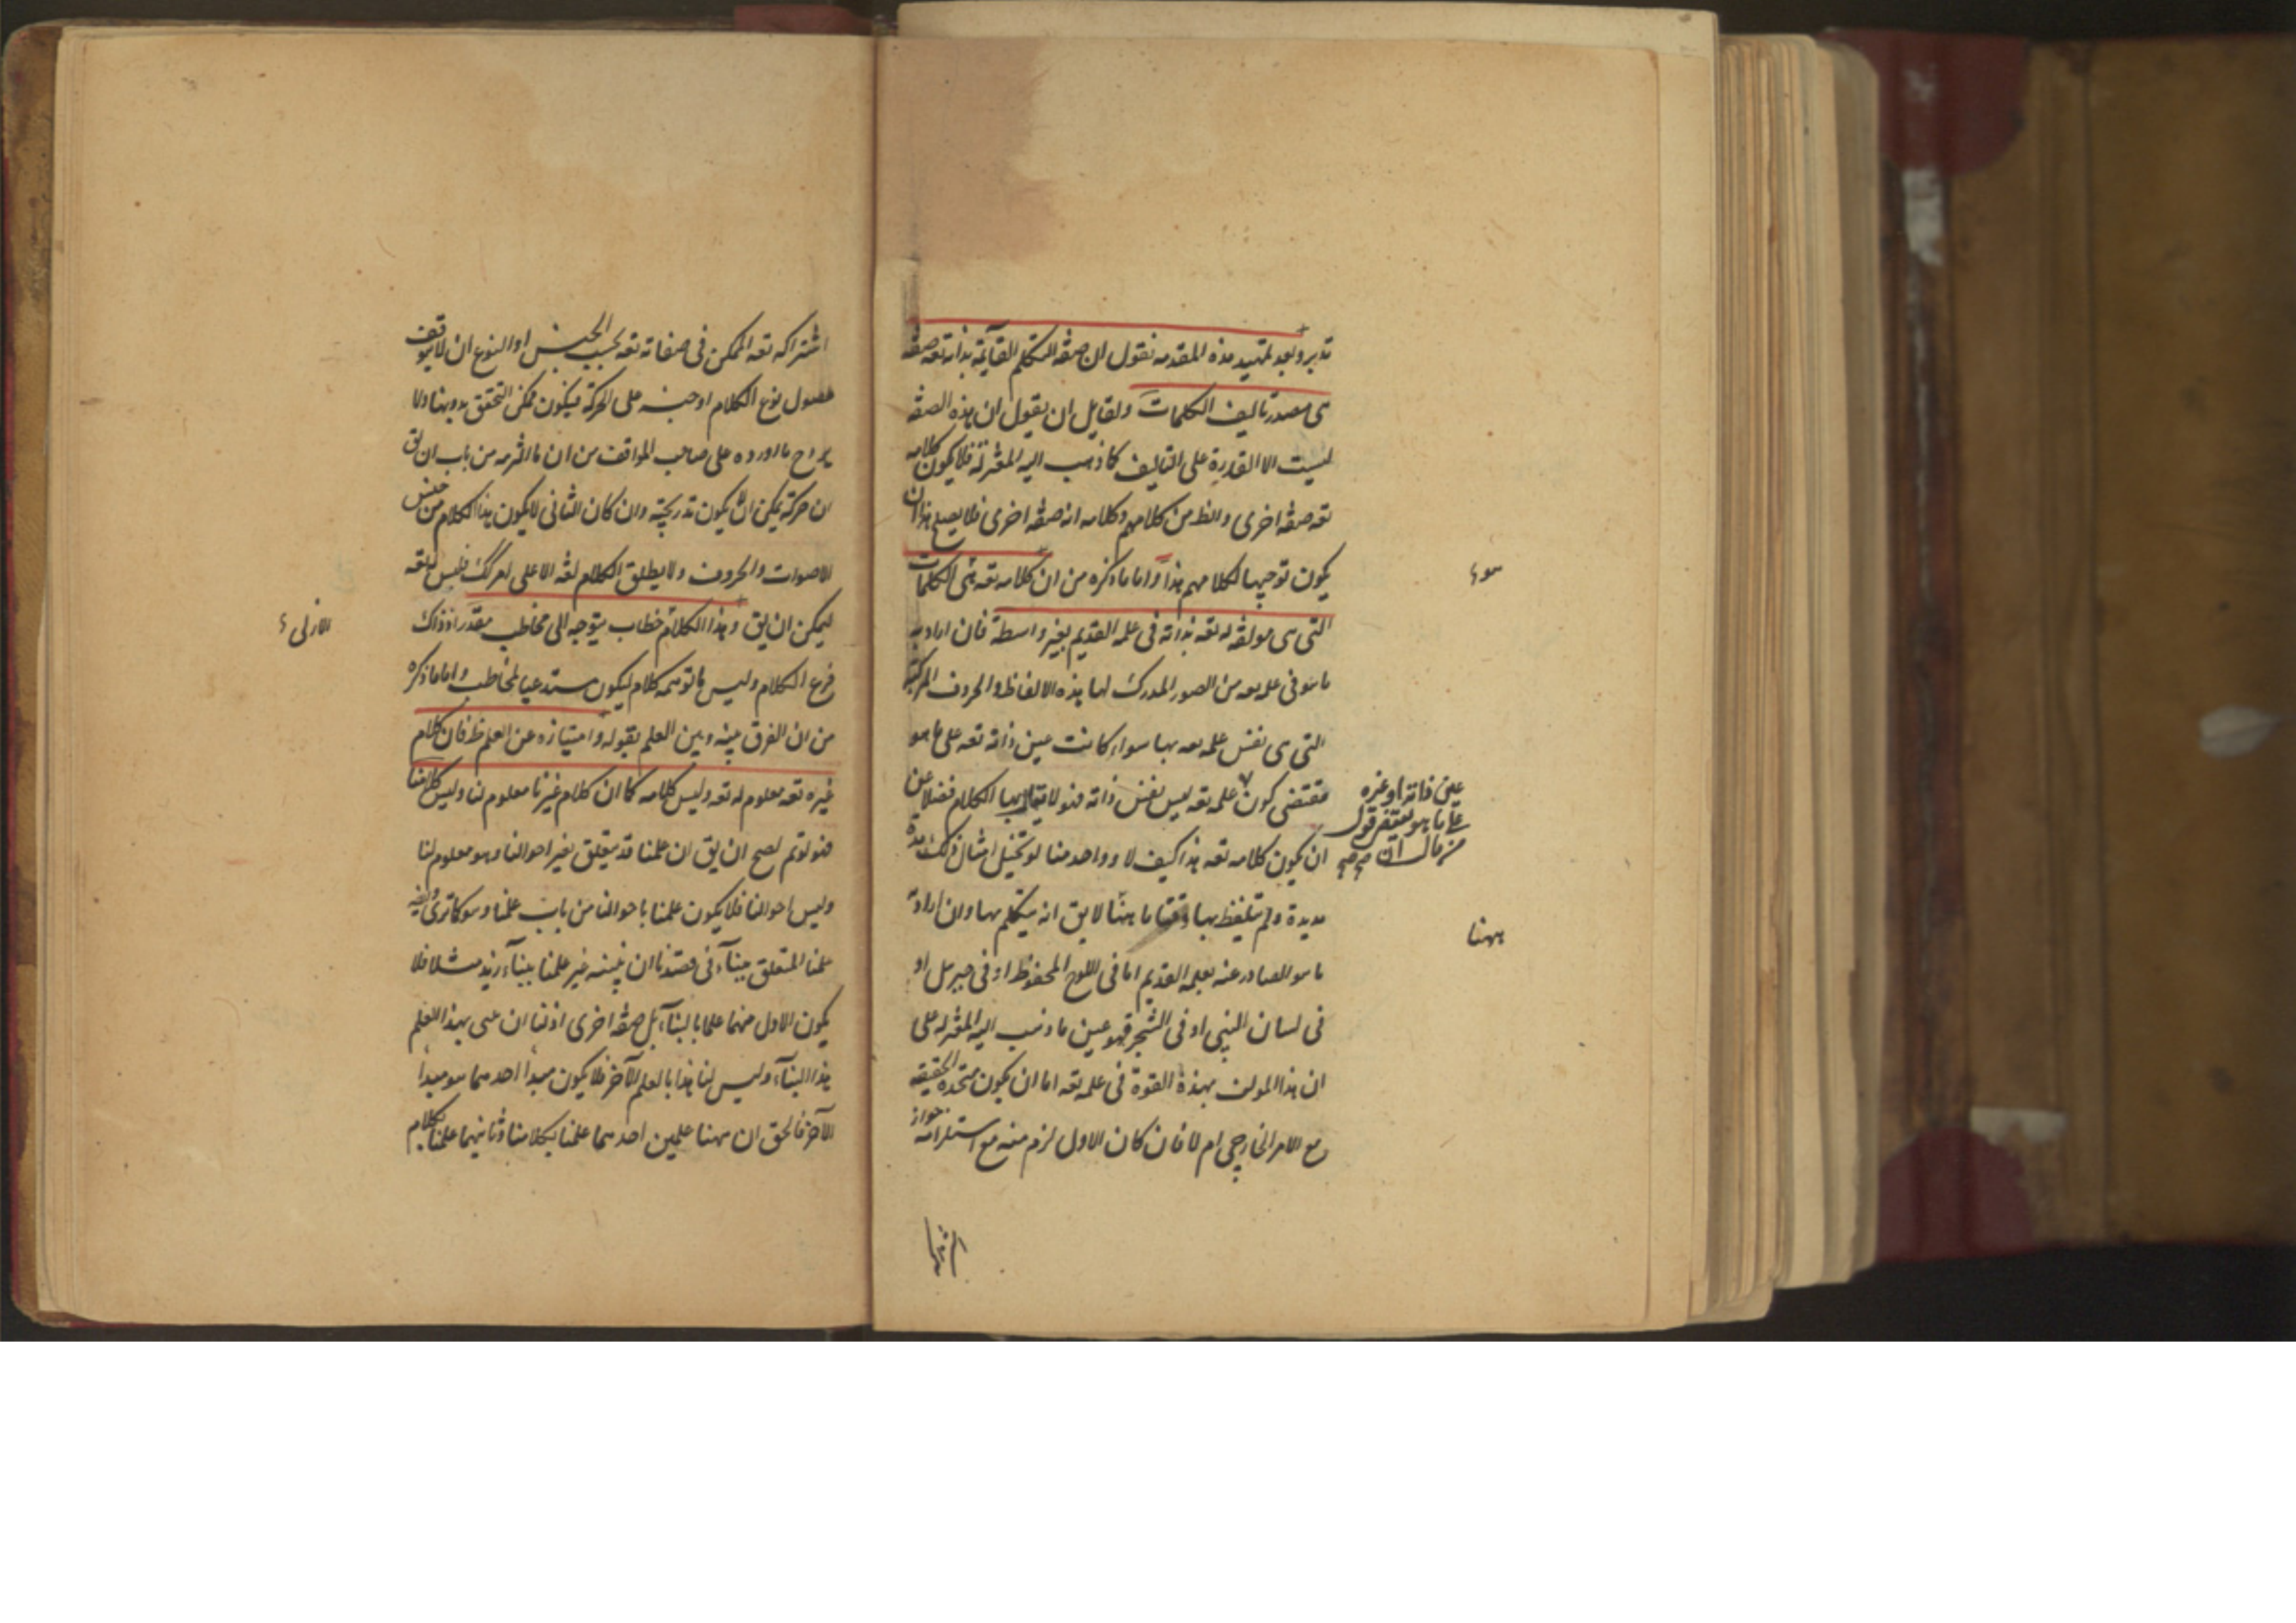 تدبر وبعد تمهيد هذه المقدمه نقول ان صفة التكلم القآئمة بذاته تعه صفة
هى مصدر تاليف الكلمات ولقايل ان يقول ان هذه الصفة
ليست الا القدرة على التاليف كما ذهب اليه المعتزلة فلا يكون كلامه
تعه صفة اخرى والظ من كلامهم وكلامه انه صفة اخرى فلا يصلح هذا ان
يكون توجيها لكلامهم هذا واما ما ذكره من ان كلامه تعه هى الكلمات
التى هى مولفة له تعه بذاته فى علمه القديم بغير واسطة فان اراد به
ما هو فى علمه من الصور المدرك لها بذه الالفاظ والحروف المركبة
التى هى نفس علمه تعه بها سواء كانت عين ذاته تعه على ما هو
مقتضى كون علمه تعه ليس نفس ذاته فهو لا يقال بها الكلام فضلا عن
ان يكون كلامه تعه هذا كيف لا وواحد منا لو تخيل امثال ذلك مدة
مديدة ولم يتلفظ بها وقتا ما هنا لا يق انه يتكلم بها وان اراد به
ما هو الصادر عنه بعلمه القديم اما فى اللوح المحفوظ او فى جبرئل او
فى لسان النبى او فى الشجر فهو عين ما ذهب اليه المعتزله على
ان هذا المولف بهذه القوة فى علمه تعه اما ان يكون متحدة الحقيقه
مع الامر الخارجى ام لا فان كان الاول لزم منه مع استلزامه جواز
سوء
عين ذاته او غيره
على ما هو
ههنا
اشتراكه تعه الممكن فى صفاته تعه بحسب الجنس او النوع ان لا يتوقف
حصول نوع الكلام او جنسه على الحركة فيكون ممكن التحقق بدونها ولا
يراح ما اورده على صاحب المواقف من ان ما التزمه من باب ان يق
ان حركة يمكن ان لا يكون تدريجية وان كان الثانى لا يكون هذا الكلام من جنس
الاصوات والحروف ولا يطلق الكلام لغة الا على المركب فليس له تعه
ليمكن ان يق وهذا الكلام خطاب يتوجه الى مخاطب مقدر اذ ذاك
فرع الكلام وليس ما توهمه كلام ليكون مستدعيا لمخاطب واما ما ذكره
من ان الفرق بينه وبين العلم بقوله وامتيازه عن العلم ظ فان كلام
غيره تعه معلوم له تعه وليس كلامه كما ان كلام غيرنا معلوم لنا وليس كلامنا
فهو لو تم لصح ان يق ان علمنا قد يتعلق بغير احوالنا وهو معلوم لنا
وليس احوالنا فلا يكون علمنا باحوالنا من باب علمنا وهو كما ترى
علمنا المتعلق ببنآء فى قصدنا ان نبنيه غير علمنا ببنآء زيد مثلا فلا
يكون الاول منهما علما بالبنآء بل صفة اخرى اذ لنا ان نبنى بهذا العلم
هذا البنآء وليس لنا هذا بالعلم الآخر فلا يكون مبدأ احدهما هو مبدأ
الآخر فالحق ان ههنا علمين احدهما علمنا بكلامنا وثانيهما علمنا بكلام
الازلى